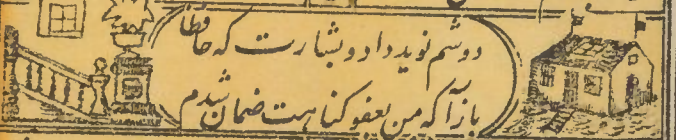 دوشم نوید داد و بشارت که حافظا
بازآ که من بعفو گناهت ضمان شدم